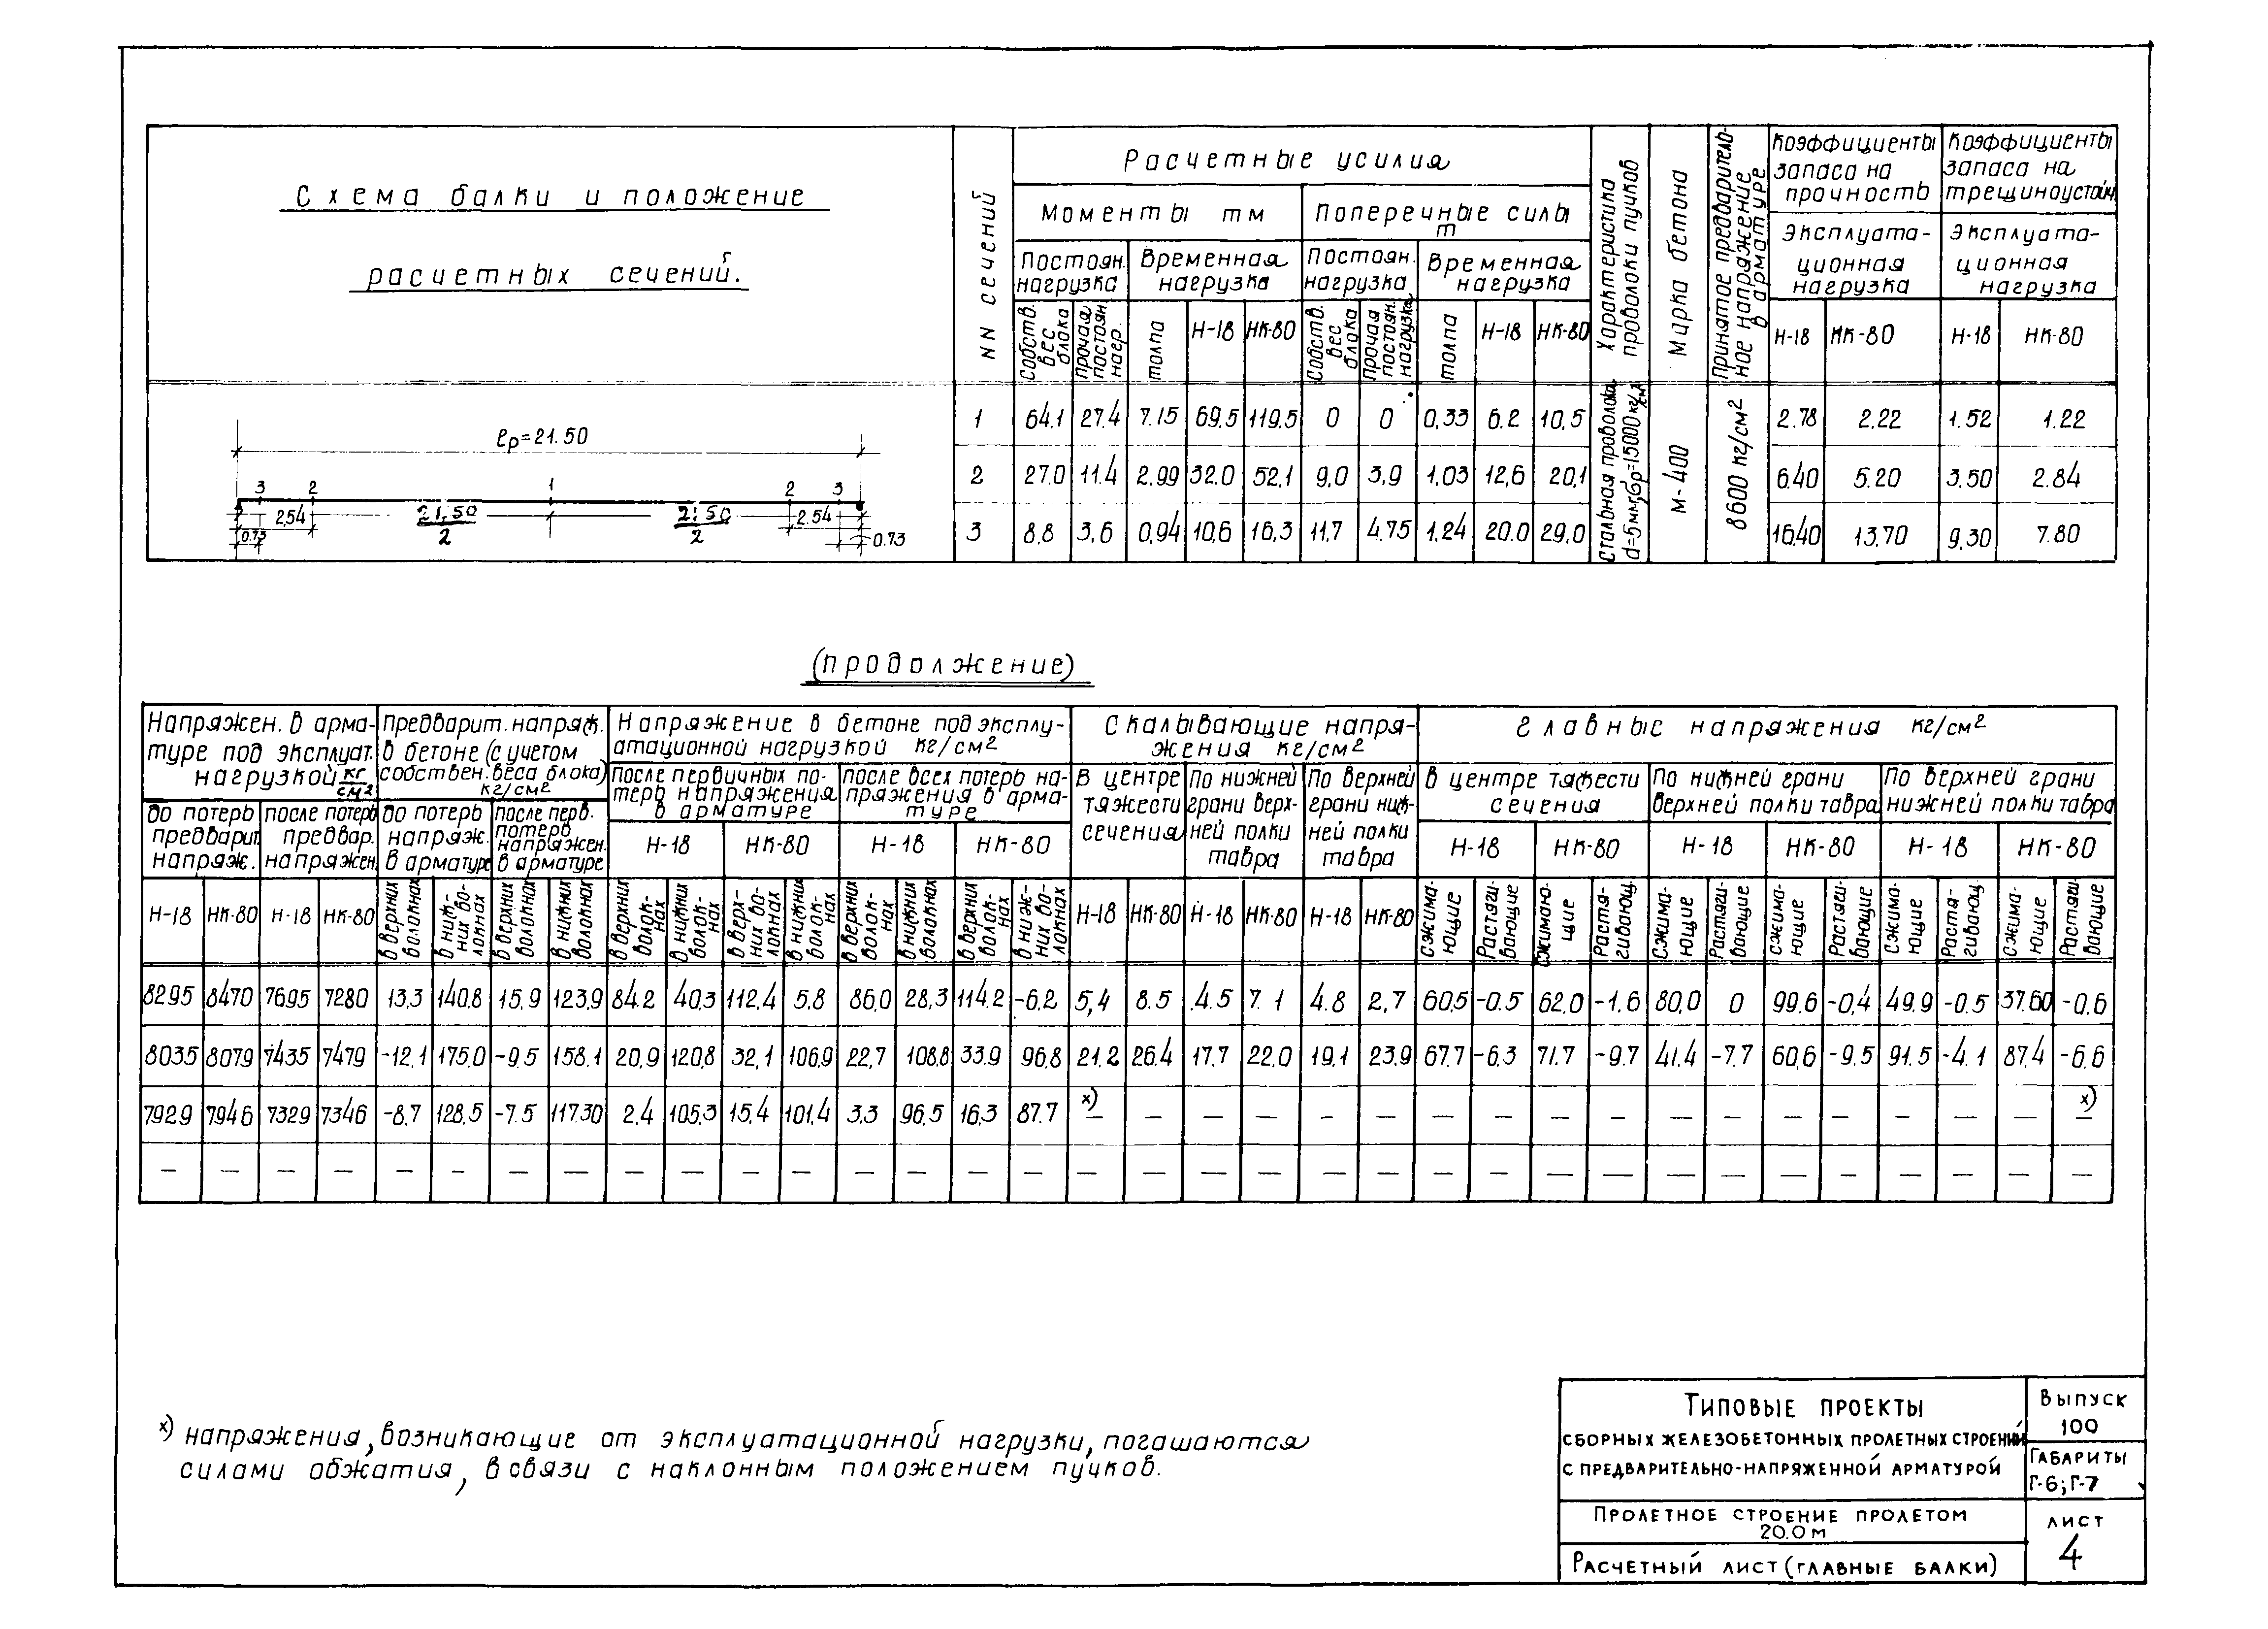 Схема балки и положение
расчетных сечений.
NN сечений
Расчетные усилия
Моменты тм
Поперечные силы т
Постоян. нагрузка
Временная нагрузка
Постоян. нагрузка
Временная нагрузка
Собств. вес блока
Прочая постоян. нагр.
толпа
Н-18
НК-80
Собств. вес блока
Прочая постоян. нагрузка
толпа
Н-18
НК-80
Характеристика проволоки пучков
Марка бетона
Принятое предварительное напряжение в арматуре
Коэффициенты запаса на прочность
Коэффициенты запаса на трещиноустойч.
Эксплуатационная нагрузка
Эксплуатационная нагрузка
Н-18
НК-80
Н-18
НК-80
ℓр=21.50
3 2 1 2 3
2.54 21.50/2 21.50/2 2.54
0.73 0.73
1 64.1 27.4 7.15 69.5 119.5 0 0 0,33 6.2 10,5 2.78 2.22 1.52 1.22
2 27.0 11.4 2.99 32.0 52,1 9,0 3,9 1,03 12,6 20,1 6.40 5.20 3.50 2.84
3 8.8 3,6 0,94 10,6 16,3 11,7 4.75 1,24 20.0 29,0 16.40 13.70 9,30 7.80
Стальная проволока d=5мм, бр=15000 кг/см2
М-400
8600 кг/см2
(продолжение)
Напряжен. в арматуре под эксплуат. нагрузкой кг/см2
Предварит. напряж. в бетоне (с учетом собствен. веса блока) кг/см2
Напряжение в бетоне под эксплуатационной нагрузкой кг/см2
Скалывающие напряжения кг/см2
Главные напряжения кг/см2
до потерь предварит. напряж.
после потерь предвар. напряжен.
до потерь напряж. в арматуре
после перв. потерь напряжен. в арматуре
после первичных потерь напряжения в арматуре
после всех потерь напряжения в арматуре
В центре тяжести сечения
По нижней грани верхней полки тавра
По верхней грани нижней полки тавра
В центре тяжести сечения
По нижней грани верхней полки тавра
По верхней грани нижней полки тавра
Н-18 НК-80 Н-18 НК-80
Н-18 НК-80 Н-18 НК-80 Н-18 НК-80
Н-18 НК-80 Н-18 НК-80
В верхних волокнах
В нижних волокнах
В верхних волокнах
В нижних волокнах
В верхних волокнах
В нижних волокнах
В верхних волокнах
В нижних волокнах
В верхних волокнах
В нижних волокнах
В верхних волокнах
В нижних волокнах
Н-18 НК-80 Н-18 НК-80 Н-18 НК-80
Сжимающие
Растягивающие
Сжимающие
Растягивающ.
Сжимающие
Растягивающие
Сжимающие
Растягивающие
Сжимающие
Растягивающ.
Сжимающие
Растягивающие
8295 8470 7695 7280 13,3 140,8 15,9 123,9 84.2 40,3 112,4 5.8 86,0 28,3 114.2 -6,2 5,4 8.5 4.5 7.1 4.8 2,7 60,5 -0.5 62.0 -1.6 80,0 0 99.6 -0,4 49.9 -0.5 37.60 -0,6
8035 8079 7435 7479 -12,1 175.0 -9.5 158,1 20,9 120,8 32,1 106,9 22,7 108,8 33.9 96,8 21.2 26.4 17,7 22,0 19,1 23,9 67.7 -6,3 71.7 -9.7 41.4 -7,7 60,6 -9.5 91.5 -4.1 87,4 -6,6
7929 7946 7329 7346 -8,7 128,5 -7.5 117.30 2.4 105,3 15,4 101.4 3,3 96,5 16,3 87.7 х)— — — — — — — — — — — — — — — — — х)—
— — — — — — — — — — — — — — — — — — — — — — — — — — — — — — — — — —
х) напряжения, возникающие от эксплуатационной нагрузки, погашаются
силами обжатия, в связи с наклонным положением пучков.
Типовые проекты
сборных железобетонных пролетных строений
с предварительно-напряженной арматурой
Выпуск
100
Габариты
Г-6; Г-7
Пролетное строение пролетом
20.0 м
Расчетный лист (главные балки)
лист
4